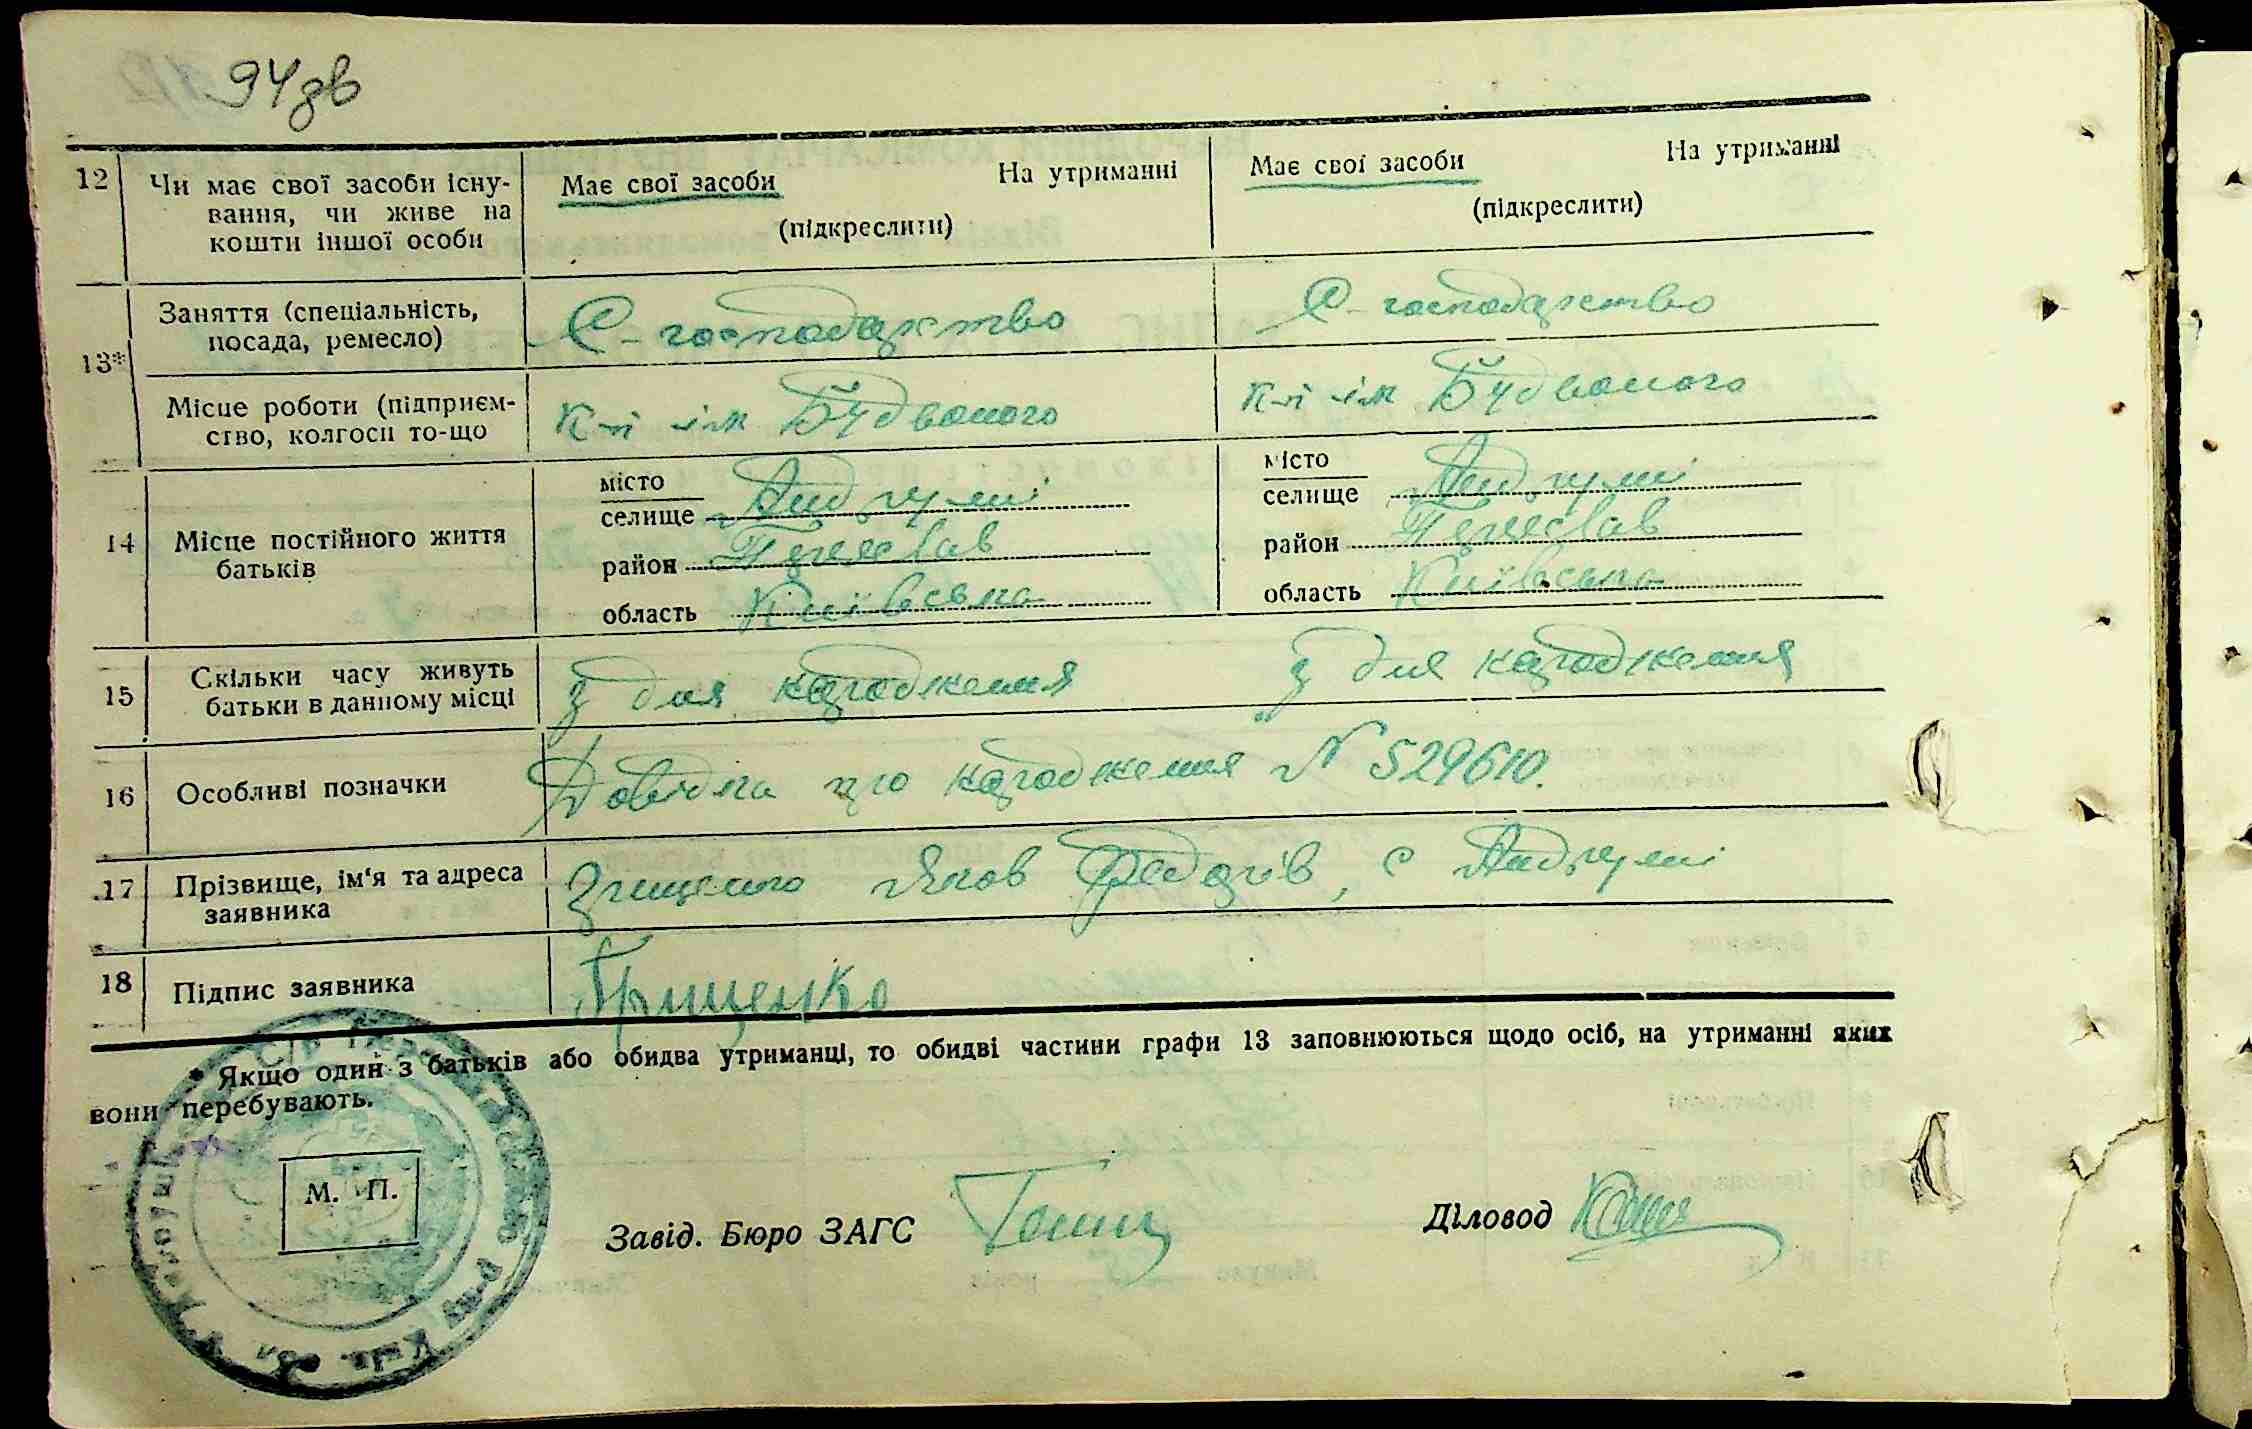 94зв
12 Чи має свої засоби існу-
вання, чи живе на
кошти іншої особи
Має свої засоби На утриманні
(підкреслити)
Має свої засоби На утриманні
(підкреслити)
13*
Заняття (спеціальність,
посада, ремесло)
С-господарство
С-господарство
Місце роботи (підприєм-
ство, колгосп то-що
К-п ім Будьоного
К-п ім Будьоного
14 Місце постійного життя
батьків
місто
селище Андруші
район Переслав
область Київська
місто
селище Андруші
район Переслав
область Київська
15 Скільки часу живуть
батьки в данному місці
з дня народження з дня народження
16 Особливі позначки Довідка про народження N 529610.
17 Прізвище, ім‘я та адреса
заявника
Грищенко Яков Федорів, с Андруші
18 Підпис заявника Грищенко
* Якщо один з батьків або обидва утриманці, то обидві частини графи 13 заповнюються щодо осіб, на утриманні яких
вони перебувають.
М. П.
Завід. Бюро ЗАГС
Діловод